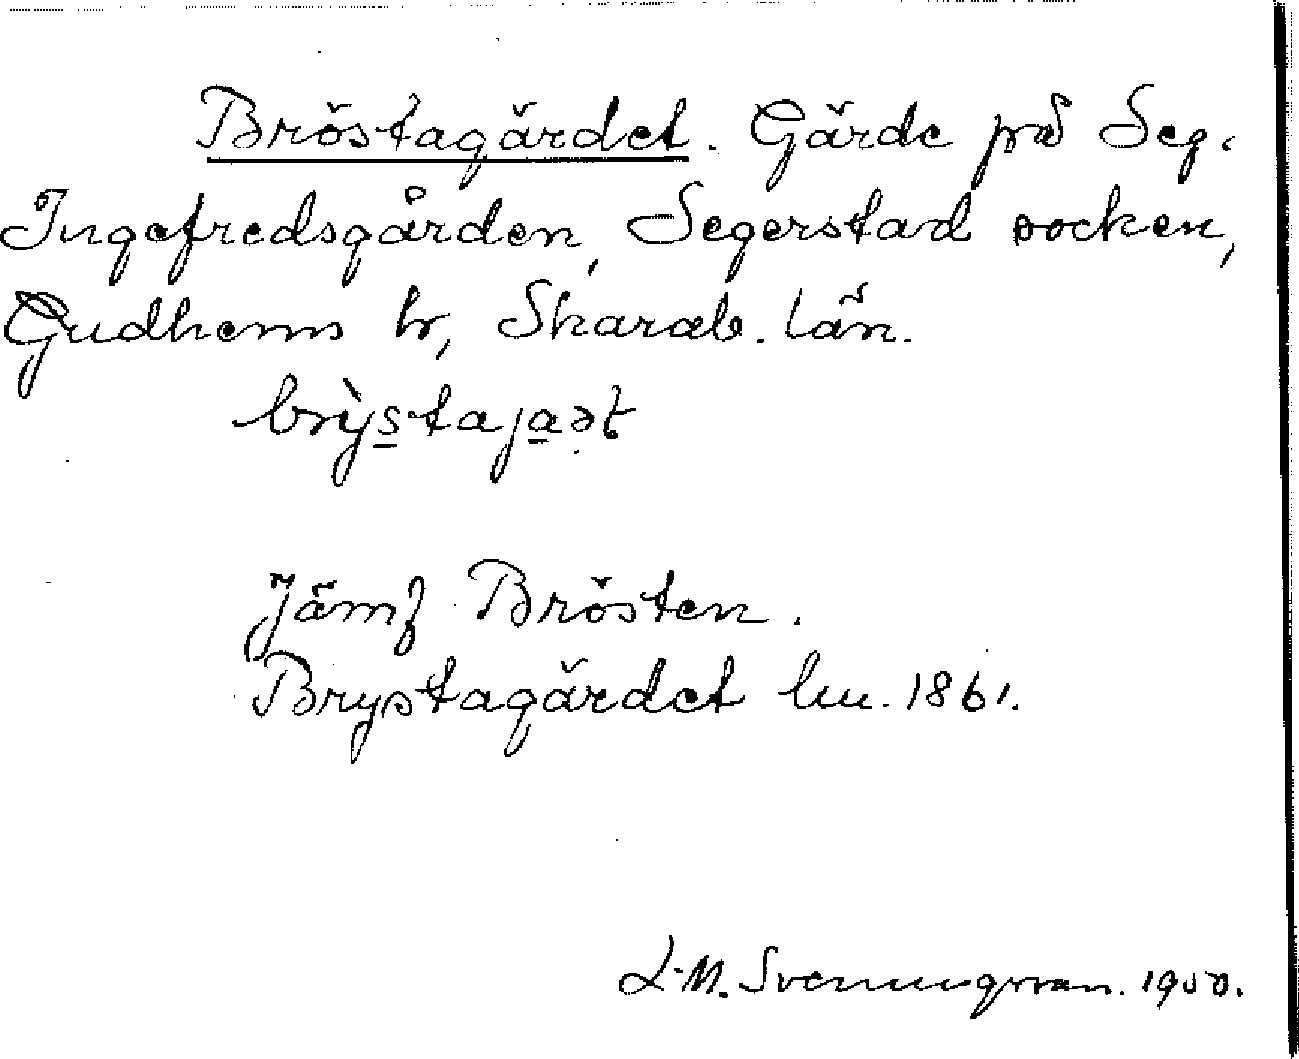 Bröstagärdet. Gärde på Seg.
Ingefredsgården, Segerstad socken,
Gudhems hr, Skarab. län.
brỳstajaət
Jämf Brösten.
Brystagärdet lm. 1861.
L.M. Svenungsson. 1950.